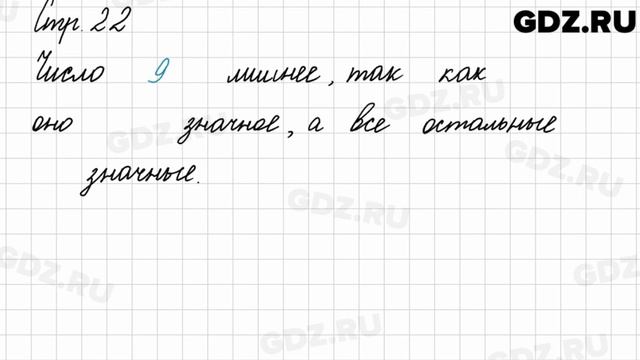 Стр. 22
GDZ.RU
Число 9 лишнее, так как
GDZ.RU
оно значное, а все остальные
GDZ.RU
GDZ.RU
значные.
GDZ.RU
GDZ.RU
GDZ.RU
GDZ.RU